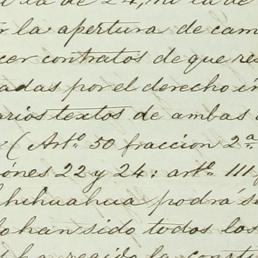 la de 24, ni la de
r la apertura de cam
cer contratos de que res
adas por el derecho in
arios textos de ambas
(Arto. 50 fraccion 2a.
iónes 22 y 24: arto. 111
Chihuahua podrá s
lo han sido todos los
ha regido la constit